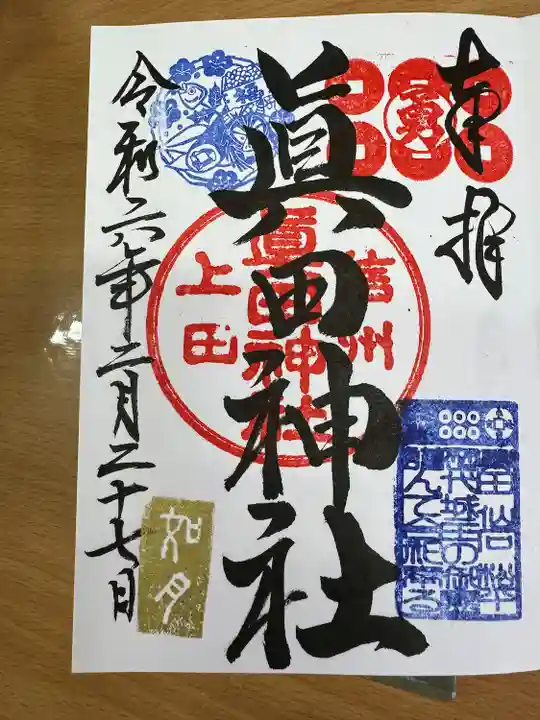 奉拝
眞田神社
信州
眞田神社
上田
令和六年二月二十七日
如月